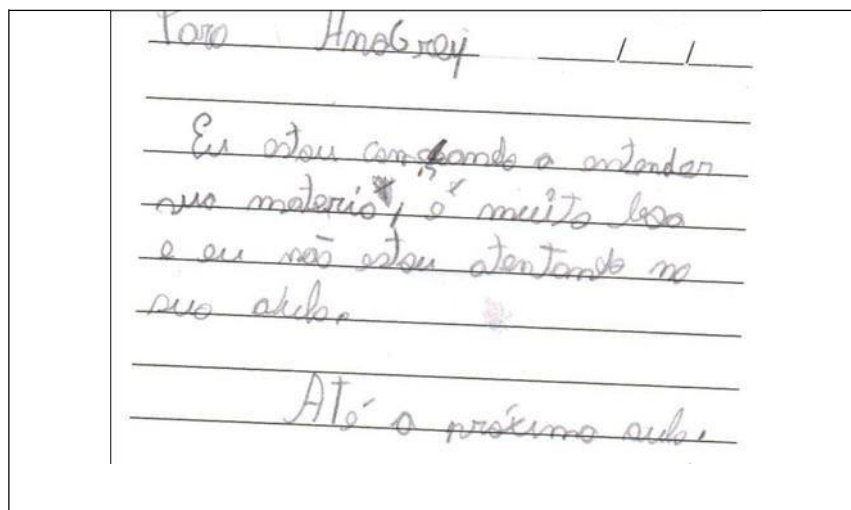 Para AnaGrey / /
Eu estou começando a entender
sua materia, é muito boa
e eu não estou atentando na
sua alula.
Até a próxima aula.